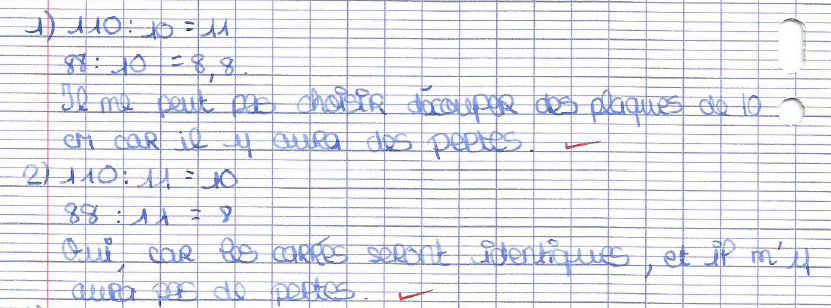 1) 110 : 10 = 11
88 : 10 = 8,8.
Il ne peut pas choisir découper des plaques de 10
cm car il y aura des pertes.
2) 110 : 11 = 10
88 : 11 = 8
Oui, car les carrés seront identiques, et il n'y
aura pas de pertes.